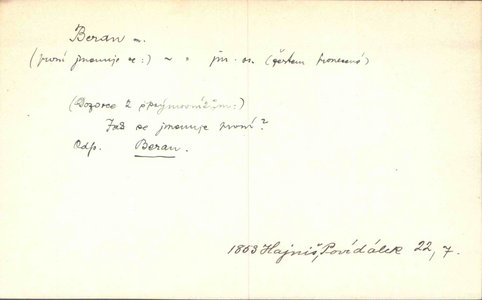 Beran m.
(první jmenuje se:) ~ " jm. os. (žertem pronesené)
(Dozorce k opejmovníkům:)
Jak se jmenuje první?
Odp. Beran.
1863 Hajniš, Povídálek 22, 7.